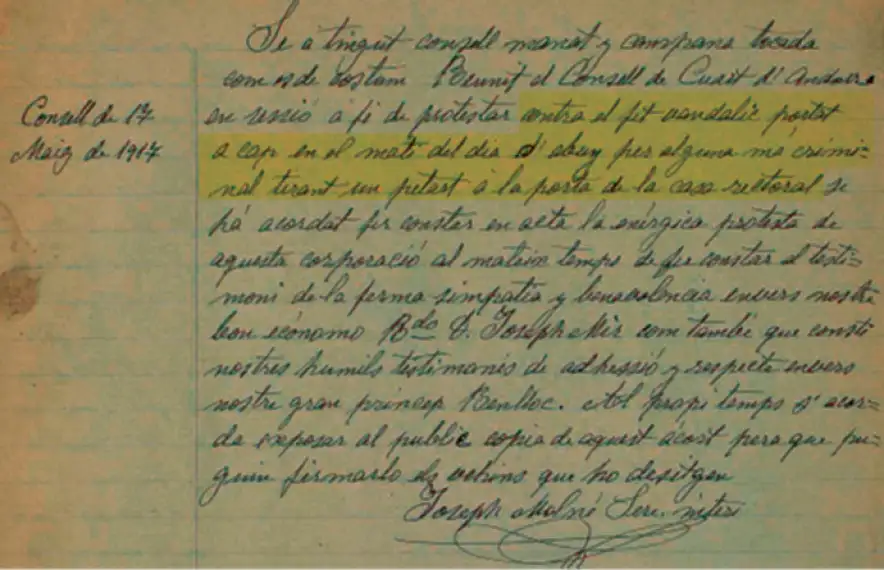 Se a tingut consell manat y campana tocada
com es de costum Reunit el Consell de Cuart d'Andorra
Consell de 17
Maig de 1917
en sessió a fi de protestar contra el fet vandalic portat
a cap en el matí del dia d'abuy per alguna má crimi-
nal tirant un petart à la porta de la casa rectoral se
há acordat fer constar en acta la enérgica protesta de
aquesta corporació al mateix temps de fer constar el testi-
moni de la ferma simpatia y benavolencia envers nostre
bon ecónomo Rdo D. Joseph Mir com també que consti
nostres humils testimonis de adhessió y respecte envers
nostre gran princep Benlloc. Al propi temps s'acor-
da exposar al public copia de aquest acort pera que pu-
guin firmarlo els vehins que ho desitgen
Joseph